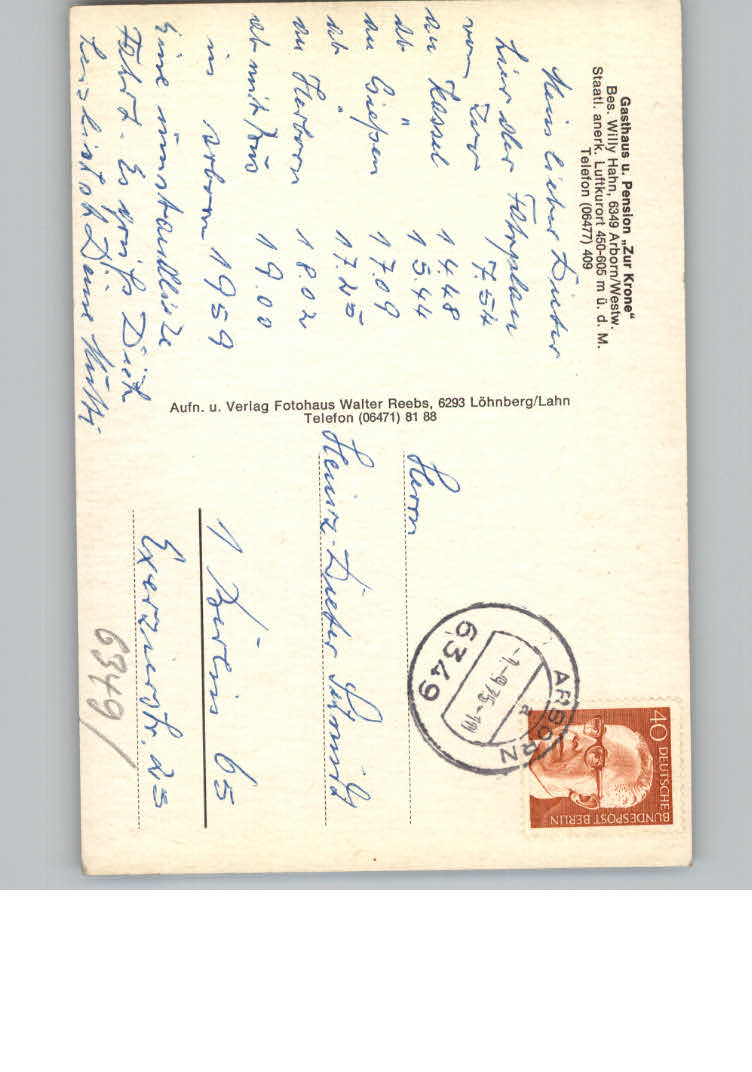 Gasthaus u. Pension „Zur Krone“
Bes. Willy Hahn, 6349 Arborn/Westw.
Staatl. anerk. Luftkurort 450-605 m ü. d. M.
Telefon (06477) 409
Mein lieber Dieter
hier der Fahrplan
von Zug 7.54
an Kassel 14.48
ab " 15.44
an Gießen 17.09
ab " 17.25
an Herborn 18.02
ab mit Bus 19.00
in Arborn 1959
Eine umständliche
Fahrt. Es grüßt Dich
herzlichst Deine Mutti
Aufn. u. Verlag Fotohaus Walter Reebs, 6293 Löhnberg/Lahn
Telefon (06471) 81 88
Herrn
Heinz-Dieter Schmitz
1 Berlin 65
Exerzierstr. 25
6349/
6349
-1.-9.75-
a
ARBORN
40
DEUTSCHE
BUNDESPOST BERLIN